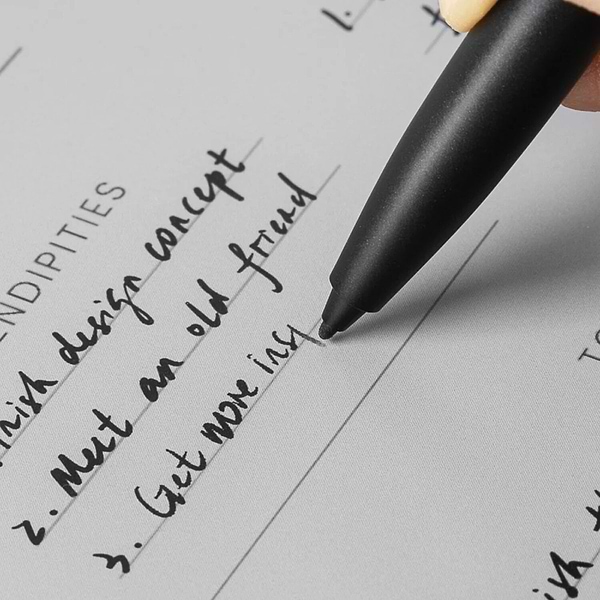 1.
ENDIPITIES
inish design concept
2. Meet an old friend
3. Get more insp
TO
ish